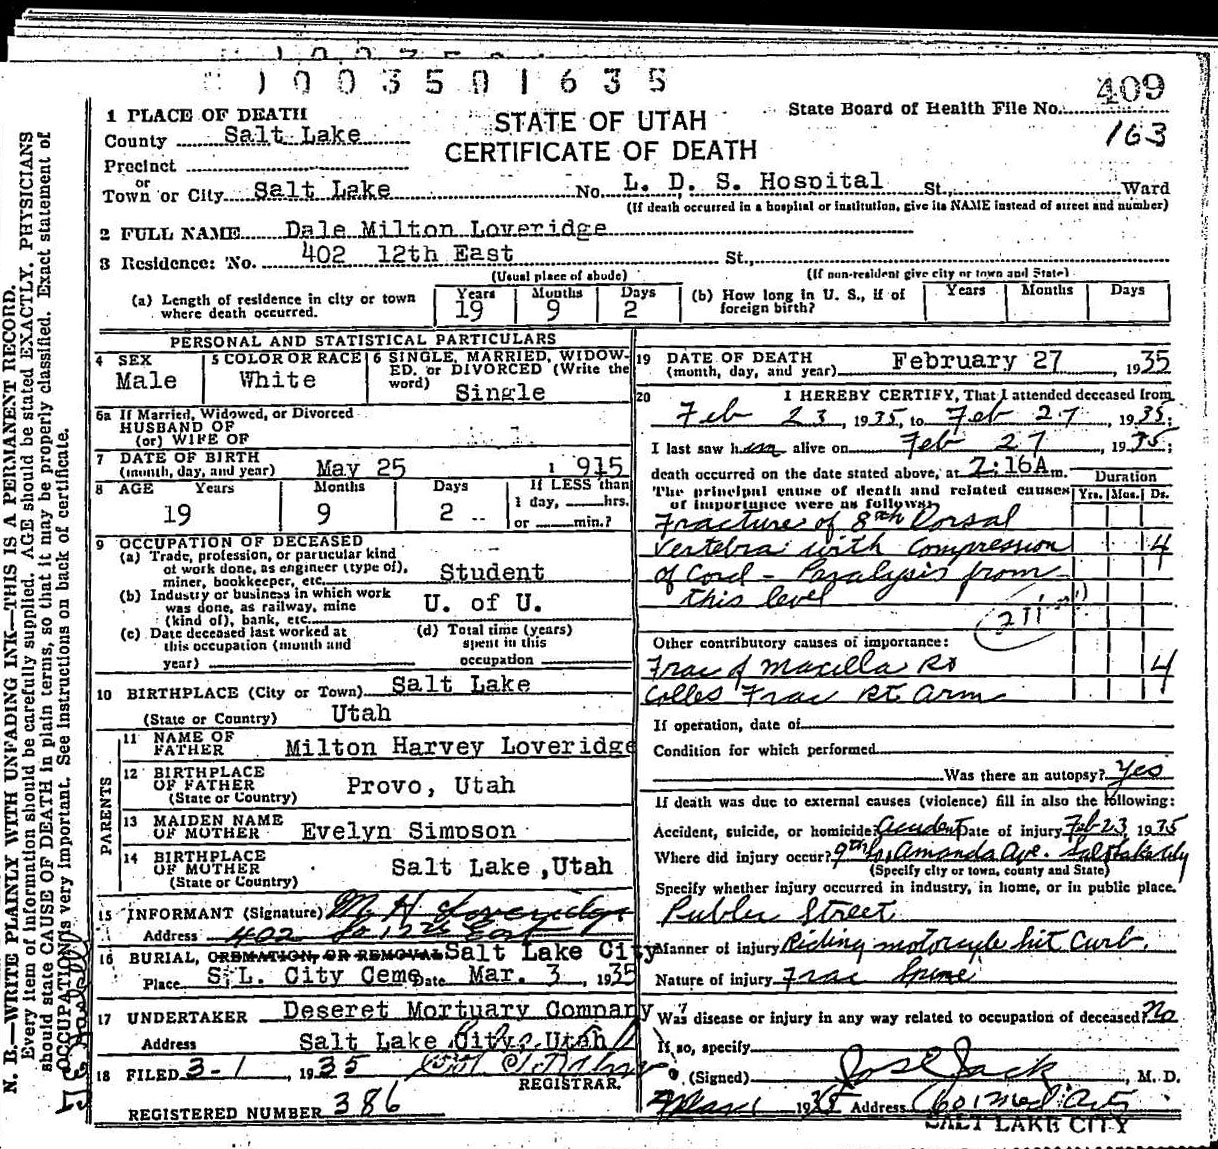 1003501635
409
163
State Board of Health File No.
STATE OF UTAH
CERTIFICATE OF DEATH
1 PLACE OF DEATH
County Salt Lake
Precinct
or
Town or City Salt Lake No. L. D. S. Hospital St., Ward
(If death occurred in a hospital or institution, give its NAME instead of street and number)
2 FULL NAME Dale Milton Loveridge
3 Residence: No. 402 12th East St.,
(Usual place of abode) (If non-resident give city or town and State)
(a) Length of residence in city or town where death occurred. Years 19 Months 9 Days 2 (b) How long in U. S., if of foreign birth? Years Months Days
PERSONAL AND STATISTICAL PARTICULARS
4 SEX Male
5 COLOR OR RACE White
6 SINGLE, MARRIED, WIDOWED, or DIVORCED (Write the word) Single
6a If Married, Widowed, or Divorced
HUSBAND OF
(or) WIFE OF
7 DATE OF BIRTH
(month, day, and year) May 25 1 915
8 AGE Years Months Days If LESS than
1 day, hrs.
or min.?
19 9 2
9 OCCUPATION OF DECEASED
(a) Trade, profession, or particular kind
of work done, as engineer (type of),
miner, bookkeeper, etc. Student
(b) Industry or business in which work
was done, as railway, mine
(kind of), bank, etc. U. of U.
(c) Date deceased last worked at
this occupation (month and
year)
(d) Total time (years)
spent in this
occupation
10 BIRTHPLACE (City or Town) Salt Lake
(State or Country) Utah
PARENTS
11 NAME OF
FATHER Milton Harvey Loveridge
12 BIRTHPLACE
OF FATHER Provo, Utah
(State or Country)
13 MAIDEN NAME
OF MOTHER Evelyn Simpson
14 BIRTHPLACE
OF MOTHER Salt Lake ,Utah
(State or Country)
15 INFORMANT (Signature) M H Loveridge
Address 402 So 12th East
16 BURIAL, CREMATION, OR REMOVAL Salt Lake City
Place S. L. City Ceme Date Mar. 3 , 1935
17 UNDERTAKER Deseret Mortuary Company
Address Salt Lake City, Utah
18 FILED 3-1 , 1935
REGISTRAR.
REGISTERED NUMBER 386
19 DATE OF DEATH
(month, day, and year) February 27 , 1935
20 I HEREBY CERTIFY, That I attended deceased from
Feb 23, 1935, to Feb 27, 1935;
I last saw him alive on Feb 27, 1935;
death occurred on the date stated above, at 2:16A m.
The principal cause of death and related causes
of importance were as follows: Duration
Yrs. Mos. Ds.
Fracture of 8th Dorsal
Vertebra with Compression 4
of Cord - Paralysis from
this level
211
Other contributory causes of importance:
Frac of Maxilla Rt 4
Colles Frac Rt Arm
If operation, date of
Condition for which performed
Was there an autopsy? Yes
If death was due to external causes (violence) fill in also the following:
Accident, suicide, or homicide: Accident Date of injury Feb 23, 1935
Where did injury occur? 9th So, Amanda Ave. Salt Lake City
(Specify city or town, county and State)
Specify whether injury occurred in industry, in home, or in public place.
Public Street
Manner of injury Riding motorcycle hit Curb.
Nature of injury Frac Spine
Was disease or injury in any way related to occupation of deceased? No
If so, specify
(Signed) Jos E Jack , M. D.
1935 Address
SALT LAKE CITY
N. B.—WRITE PLAINLY WITH UNFADING INK—THIS IS A PERMANENT RECORD.
Every item of information should be carefully supplied. AGE should be stated EXACTLY. PHYSICIANS
should state CAUSE OF DEATH in plain terms, so that it may be properly classified. Exact statement of
OCCUPATION is very important. See instructions on back of certificate.